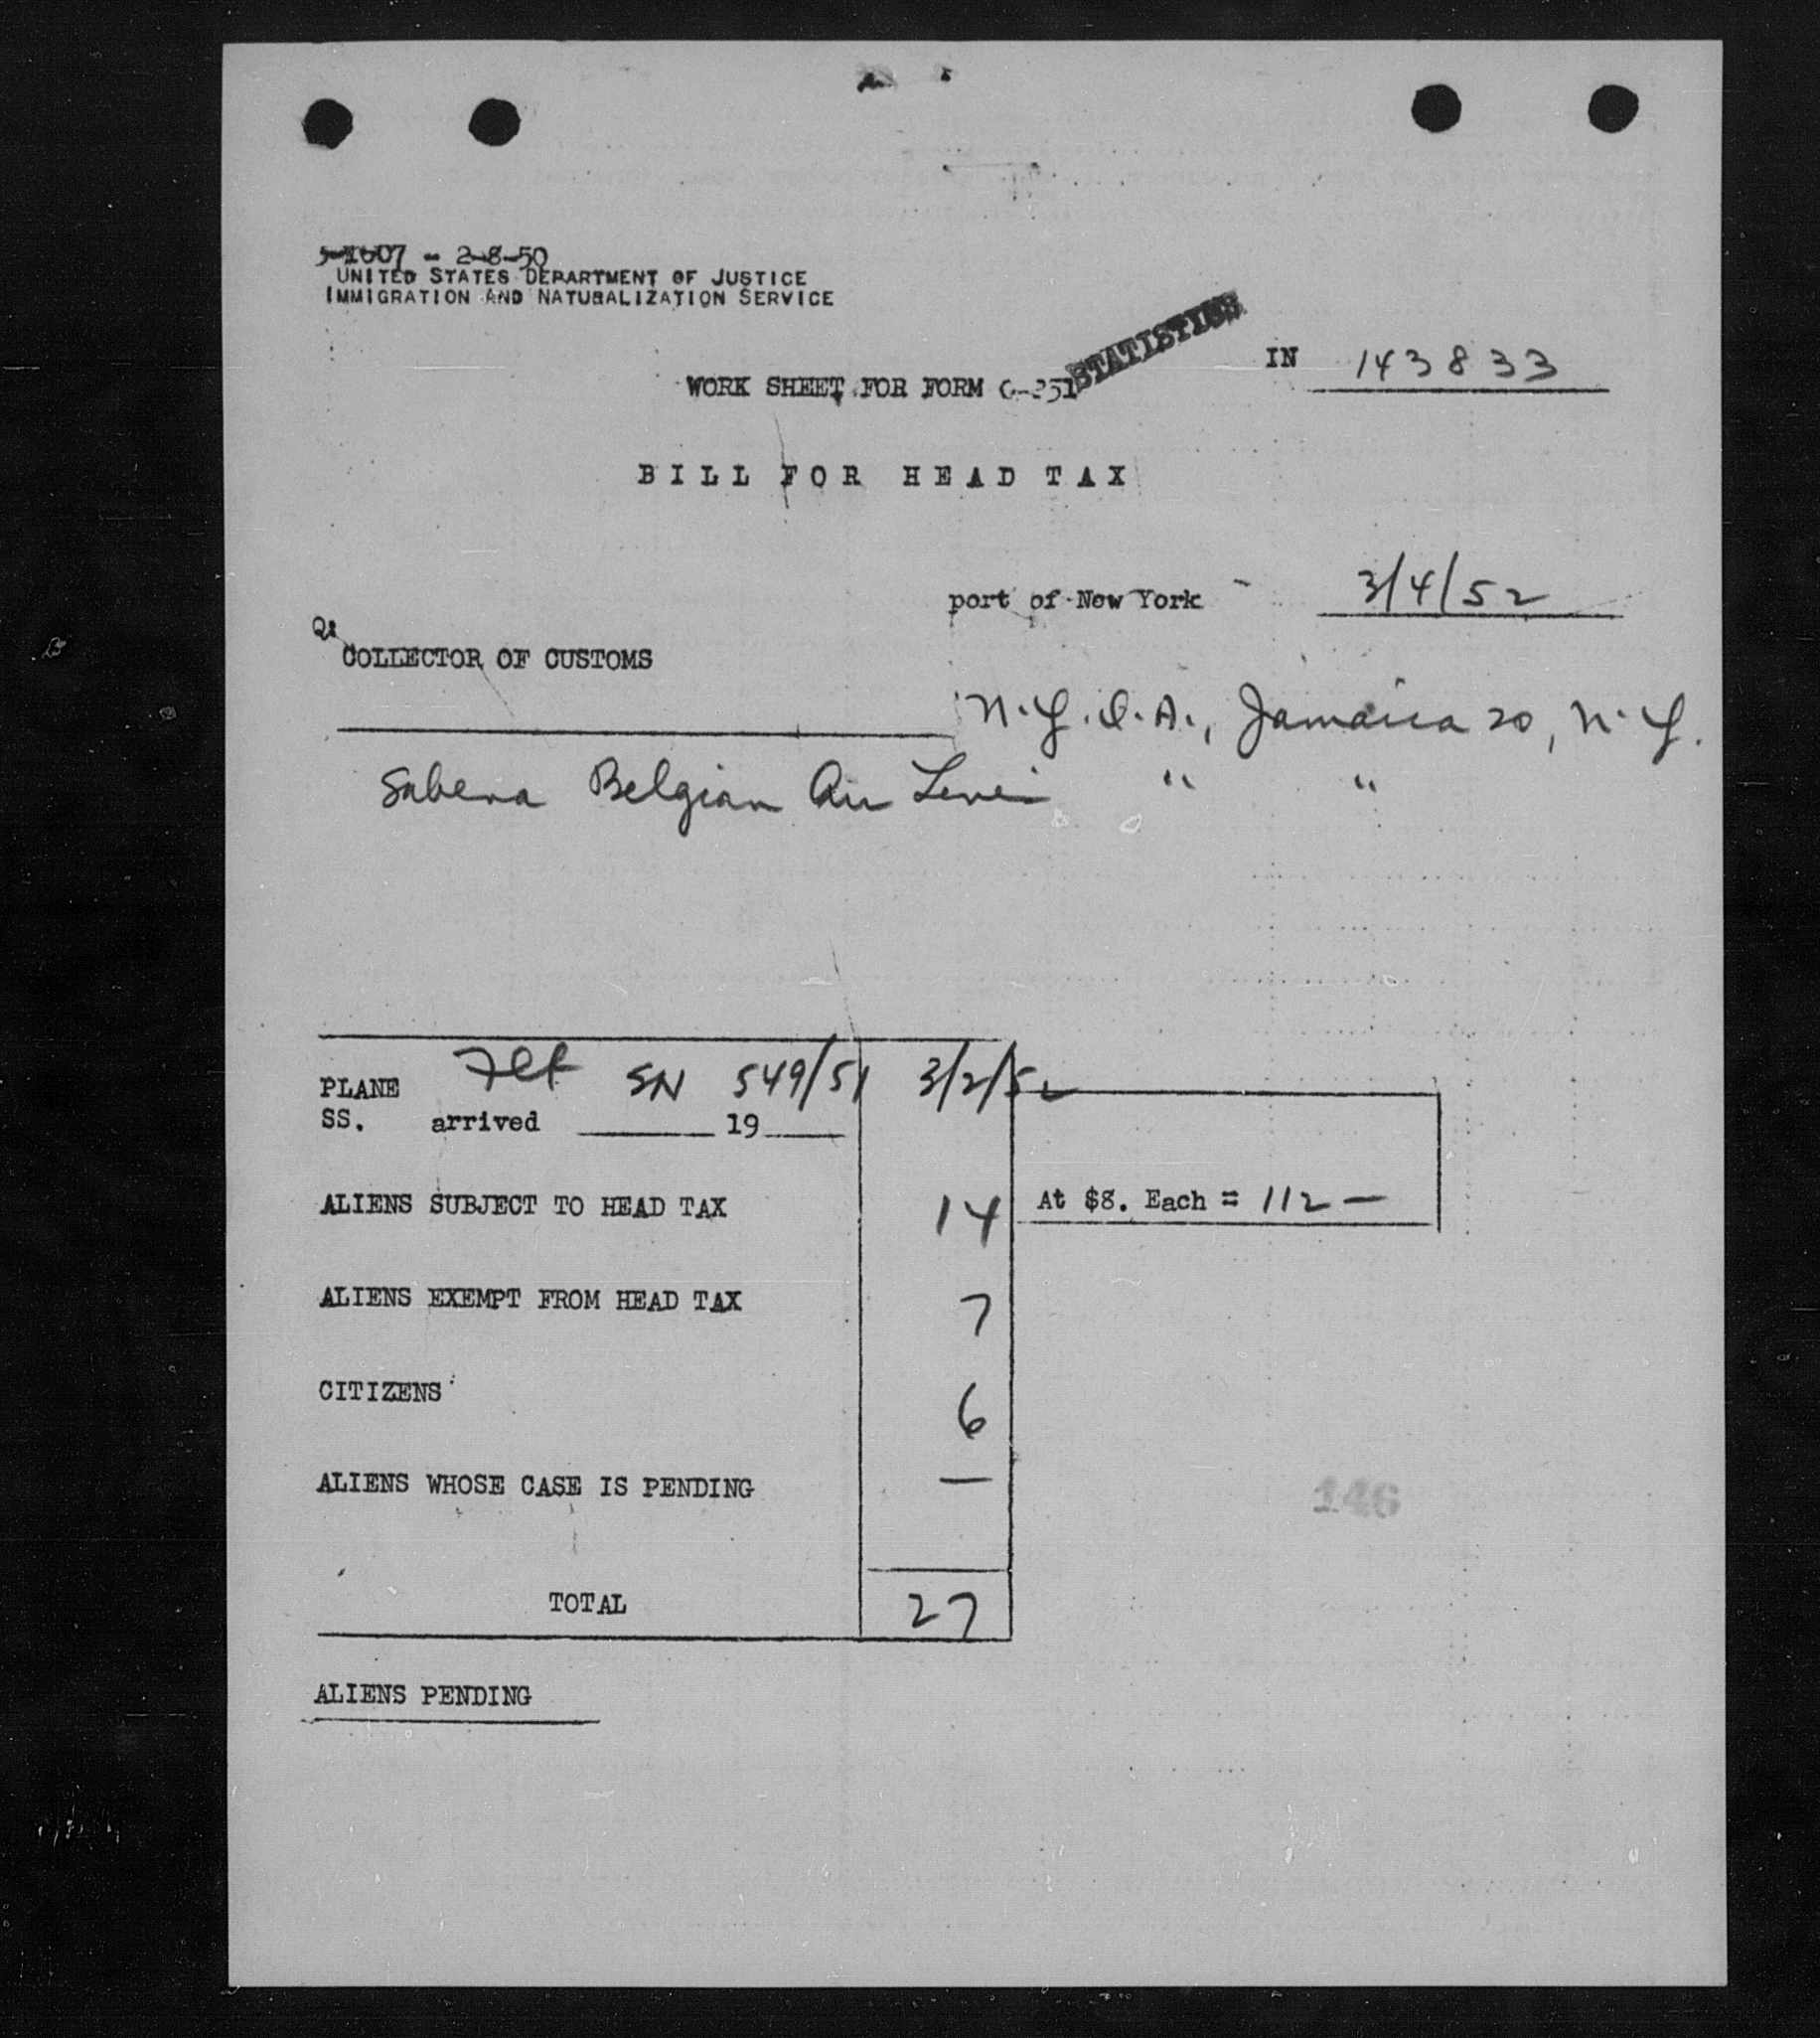 5-1607 - 2-8-50
UNITED STATES DEPARTMENT OF JUSTICE
IMMIGRATION AND NATURALIZATION SERVICE
STATISTICS
IN 143833
WORK SHEET FOR FORM G-251
BILL FOR HEAD TAX
port of New York 3/4/52
COLLECTOR OF CUSTOMS
N.Y.I.A., Jamaica 20, N.Y.
Sabena Belgian Air Lines " "
PLANE Flt SN 549/51 3/2/52
SS. arrived ______ 19____
ALIENS SUBJECT TO HEAD TAX 14 At $8. Each = 112 —
ALIENS EXEMPT FROM HEAD TAX 7
CITIZENS 6
ALIENS WHOSE CASE IS PENDING —
146
TOTAL 27
ALIENS PENDING